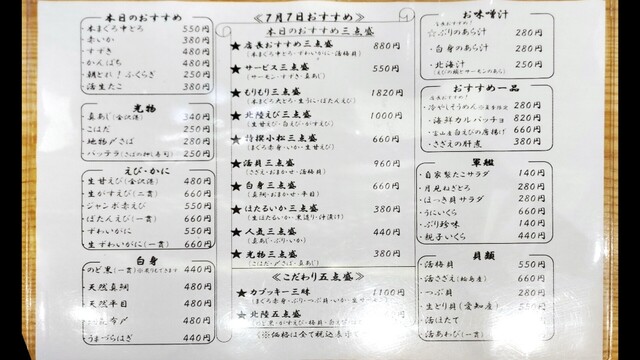 本日のおすすめ
・本まぐろ中とろ 550円
・赤いか 380円
・すずき 480円
・かんぱち 480円
・朝とれ!ふくらぎ 250円
・活生たこ 380円
光物
・真あじ(金沢港) 340円
・こはだ 250円
・地物〆さば 290円
・バッテラ(さばの押し寿司) 250円
えび・かに
・生甘えび(金沢港) 480円
・生がすえび(二貫) 660円
・ジャンボ赤えび 550円
・ぼたんえび(一貫) 660円
・ずわいがに 550円
・生ずわいがに(一貫) 660円
白身
・のど黒(一貫)※炙りもできます 440円
・天然真鯛 480円
・天然平目 480円
480円
・うまづらはぎ 440円
≪7月7日おすすめ≫
本日のおすすめ三点盛
★店長おすすめ三点盛 880円
(本まぐろ中とろ・ずわいがに・活梅貝)
★サービス三点盛 550円
(サーモン・すずき・真あじ)
★もりもり三点盛 1820円
(本まぐろ大とろ・生うに・ぼたんえび)
★北陸えび三点盛 1000円
(生甘えび・白えび・がすえび)
★特撰小松三点盛 660円
(まぐろ赤身・いか・生甘えび)
★活貝三点盛 960円
(さざえ・おまかせ・活梅貝)
★白身三点盛 660円
(真鯛・おまかせ・平目)
★ほたるいか三点盛 380円
(生ほたるいか・黒造り・沖漬け)
★人気三点盛 440円
(真あじ・ぶり・いか)
★光物三点盛 380円
(こはだ・〆さば・真あじ)
≪こだわり五点盛≫
★カブッキー三昧 1100円
(まぐろ赤身・ぶり・つぶ貝・いか・生サーモン)
★北陸五点盛
※価格は全て税込表示
お味噌汁
店長おすすめ!
☆ぶりのあら汁 280円
・白身のあら汁 280円
・北海汁 250円
(えびの頭とサーモンのあら)
おすすめ一品
店長おすすめ!
・冷やしそうめん 280円
・海鮮カルパッチョ 820円
・富山産白えびの唐揚げ 660円
・さざえの肝煮 380円
軍艦
・自家製たこサラダ 140円
・月見ねぎとろ 290円
・ほっき貝サラダ 290円
・うにいくら 660円
・ぶり珍味 140円
・親子いくら 440円
貝類
・活梅貝 550円
・活さざえ(輪島産) 660円
・つぶ貝 280円
・生とり貝(愛知産) 550円
・活ほたて 550円
・活あわび(一貫) 660円